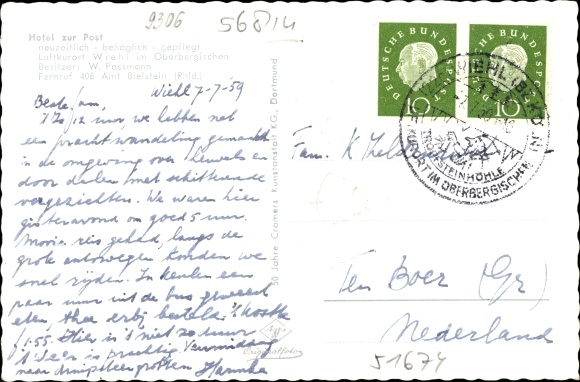 9306
56814
Hotel zur Post
neuzeitlich - behaglich - gepflegt
Luftkurort Wiehl im Oberbergischen
Besitzer: W. Passmann
Fernruf 406 Amt Bielstein (Rhld.)
Wiehl 7-7-'59
12 uur we hebben net
een pracht wandeling gemaakt
in de omgeving over heuvels en
door dalen met schitterende
vergezichten. We waren hier
gisteravond om goed 5 uur.
Mooie reis gehad, langs de
grote autowegen konden we
snel rijden. In Keulen een
paar uur uit de bus geweest
eten, thee erbij 't kostte
1.55. Hier is 't niet zo duur
't weer is prachtig Vanmiddag
naar druipsteengrotten Hannke
50 Jahre Cramers Kunstanstalt KG., Dortmund
Originalfoto
DEUTSCHE BUNDESPOST
10
DEUTSCHE BUNDESPOST
10
WIEHL (BZ. KÖLN)
TROPFSTEINHÖHLE
KURORT IM OBERBERGISCHEN
Fam. K
Ten Boer (Gr)
Nederland
51674